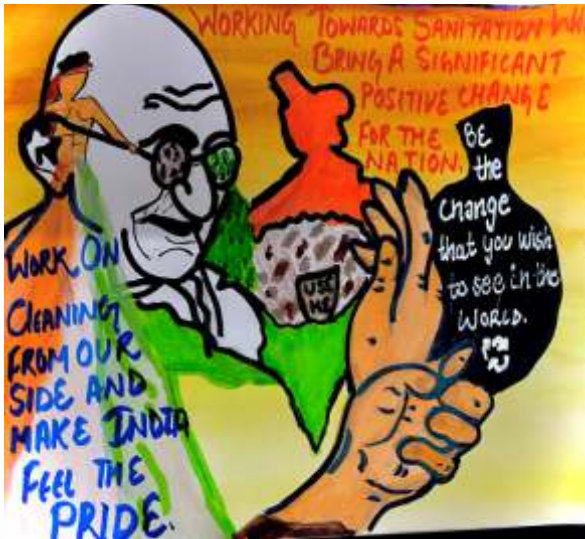 WORKING TOWARDS SANITATION
BRING A SIGNIFICANT
POSITIVE CHANGE
FOR THE
NATION.
BE
the
Change
that you wish
to see in the
WORLD.
USE
ME
WORK ON
CLEANING
FROM OUR
SIDE AND
MAKE INDIA
FEEL THE
PRIDE.